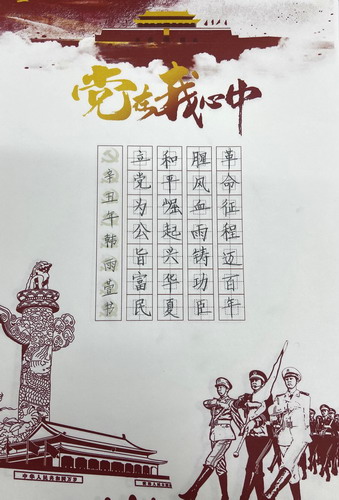 党在我心中
革命征程迈百年
腥风血雨铸功臣
和平崛起兴华夏
立党为公旨富民
辛丑年韩雨萱书
中华人民共和国万岁